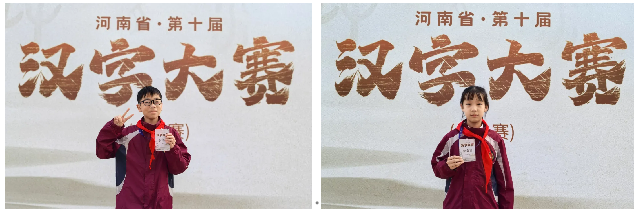 河南省·第十届
汉字大赛
赛)
河南省·第十届
汉字大赛
赛)